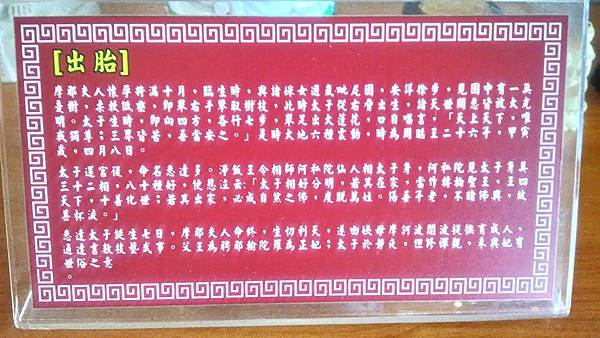 [出胎]
摩耶夫人懷孕將滿十月，臨生時，與諸婇女遊嵐毗尼園，安詳徐步，見園中有一具
憂樹，柔枝低垂，即舉右手取樹枝，此時太子從右脅出生，諸天世間悉皆放大光
明。太子生時，即向四方各行七步，舉足出大蓮花，口自唱言，「天上天下，唯
我獨尊；三界皆苦，吾當安之。」是時大地六種震動，時為周昭王二十六年，甲寅
歲，四月八日。
太子還宮後，命名悉達多。淨飯王令相師阿私陀仙人相太子身，阿私陀見太子身具
三十二相，八十種好，便悲泣云:「太子相好分明，若其在家，當作轉輪聖王，王四
天下，十善化世；若其出家，必成自然之佛，度脫萬姓。傷吾年老，不睹佛興，故
悲抔淚。」
悉達太子誕生七日，摩耶夫人命終，生忉利天，遂由姨母摩訶波闍波提撫育成人，
通達言教技藝武事。父王為聘耶輸陀羅為正妃；太子於靜夜，但修禪觀，未與妃有
世俗之意
。